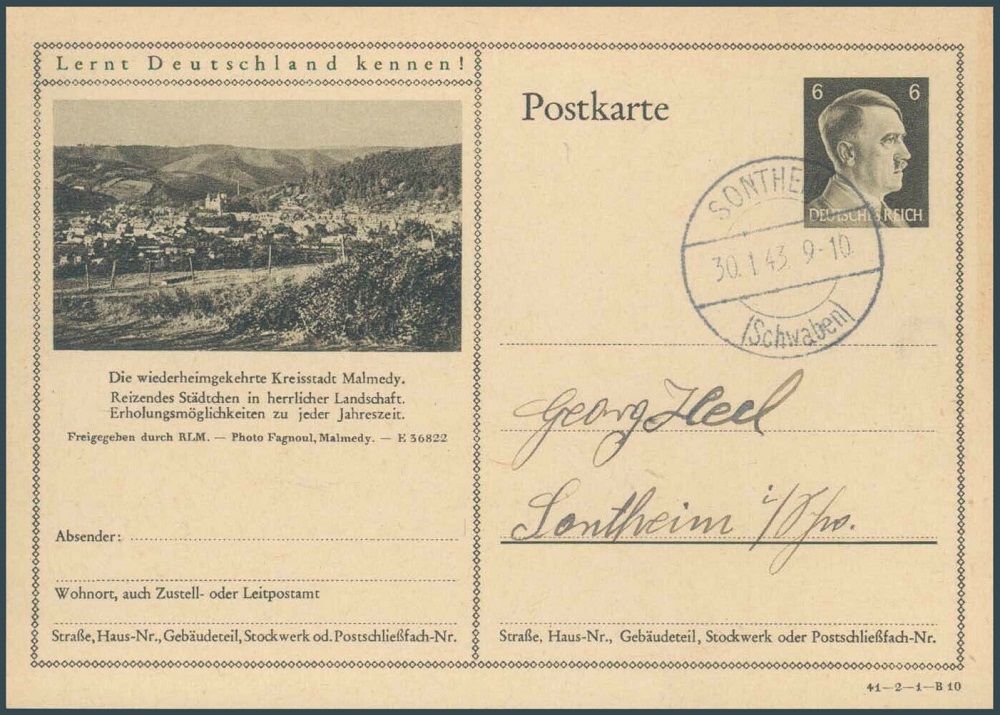 Lernt Deutschland kennen!
Die wiederheimgekehrte Kreisstadt Malmedy.
Reizendes Städtchen in herrlicher Landschaft.
Erholungsmöglichkeiten zu jeder Jahreszeit.
Freigegeben durch RLM. — Photo Fagnoul, Malmedy. — E 36822
Absender:
Wohnort, auch Zustell- oder Leitpostamt
Straße, Haus-Nr., Gebäudeteil, Stockwerk od. Postschließfach-Nr.
Postkarte
6 6
DEUTSCHES REICH
30.1.43. 9-10
(Schwaben)
Georg Heel
Sontheim i/Schw.
Straße, Haus-Nr., Gebäudeteil, Stockwerk oder Postschließfach-Nr.
41—2—1—B 10